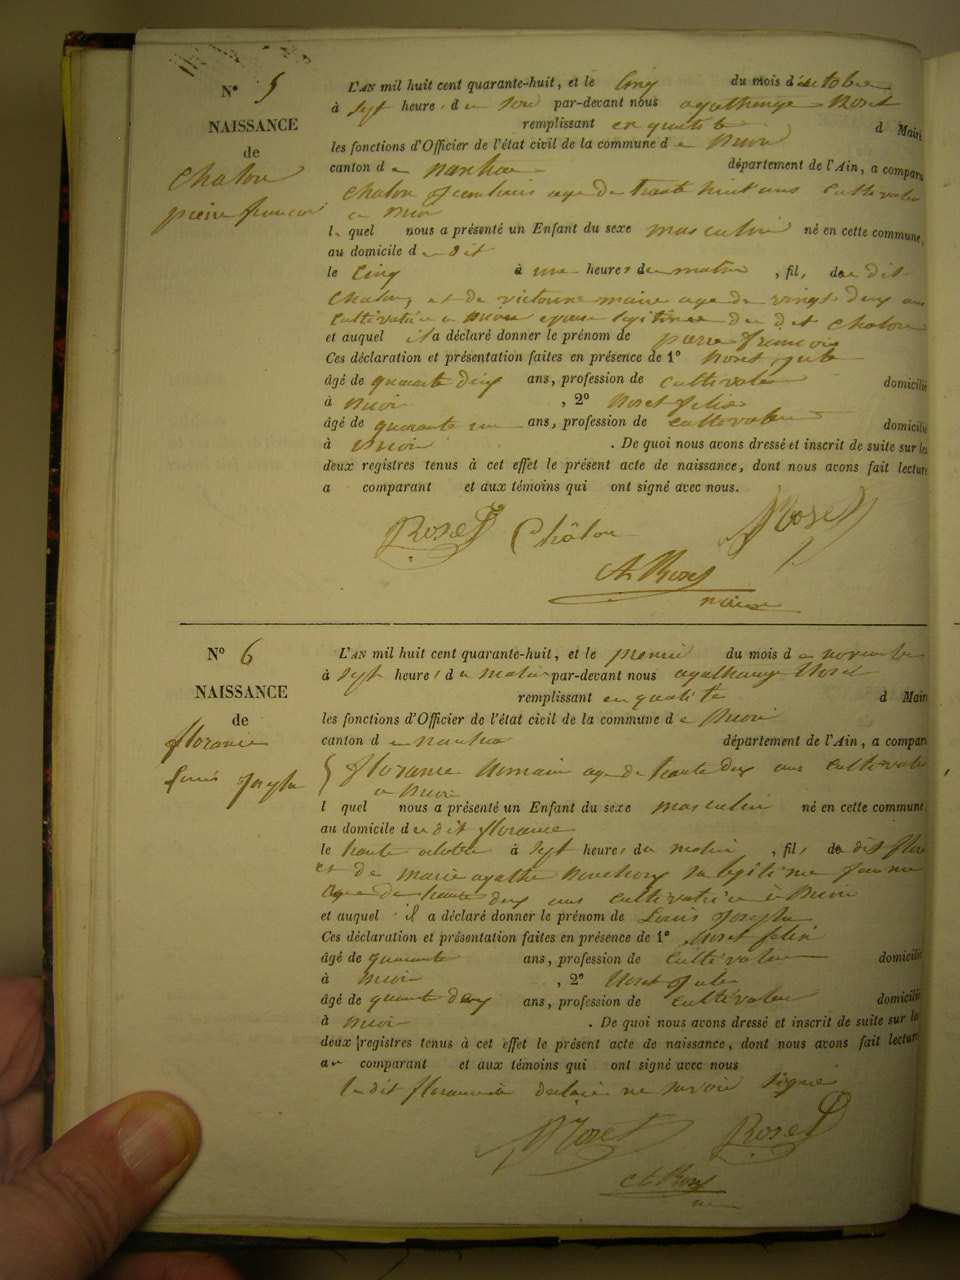 N° 5
NAISSANCE
de
Chalon
pierre françois
L'AN mil huit cent quarante-huit, et le cinq du mois d'octobre
à sept heures du soir par-devant nous agathange Roset
remplissant en qualité d Maire
les fonctions d'Officier de l'état civil de la commune de
canton de nantua département de l'Ain, a comparu
Chalon age de trente huit ans Cultivateur
a
lequel nous a présenté un Enfant du sexe masculin né en cette commune,
au domicile du dit
le cinq à une heure, du matin, fil, du dit
Chalon, et de victoire marie age de vingt deux ans
cultivatrice a epouse legitime du dit Chalon
et auquel il a déclaré donner le prénom de pierre françois
Ces déclaration et présentation faites en présence de 1° Roset
âgé de quarante deux ans, profession de cultivateur domicilié
à , 2° Roset felix
âgé de quarante un ans, profession de cultivateur domicilié
à . De quoi nous avons dressé et inscrit de suite sur les
deux registres tenus à cet effet le présent acte de naissance, dont nous avons fait lecture
a comparant et aux témoins qui ont signé avec nous.
Roset Châlon Roset
At Roset
maire
N° 6
NAISSANCE
de
florance
Louis Joseph
L'AN mil huit cent quarante-huit, et le premier du mois de novembre
à sept heures du matin par-devant nous agathange Roset
remplissant en qualité d Maire
les fonctions d'Officier de l'état civil de la commune de
canton de nantua département de l'Ain, a comparu
florance Romain age de trente deux ans cultivateur
a
l quel nous a présenté un Enfant du sexe masculin né en cette commune,
au domicile du dit florance
le trente octobre à sept heures du matin, fil, du dit
et de marie agathe sa legitime femme
age de trente deux ans cultivatrice à
et auquel il a déclaré donner le prénom de Louis Joseph
Ces déclaration et présentation faites en présence de 1° Roset felix
âgé de quarante ans, profession de cultivateur domicilié
à , 2° Roset
âgé de quarante deux ans, profession de cultivateur domicilié
à . De quoi nous avons dressé et inscrit de suite sur les
deux registres tenus à cet effet le présent acte de naissance, dont nous avons fait lecture
au comparant et aux témoins qui ont signé avec nous
le dit florance a declaré ne savoir signé
Roset Roset
At Roset